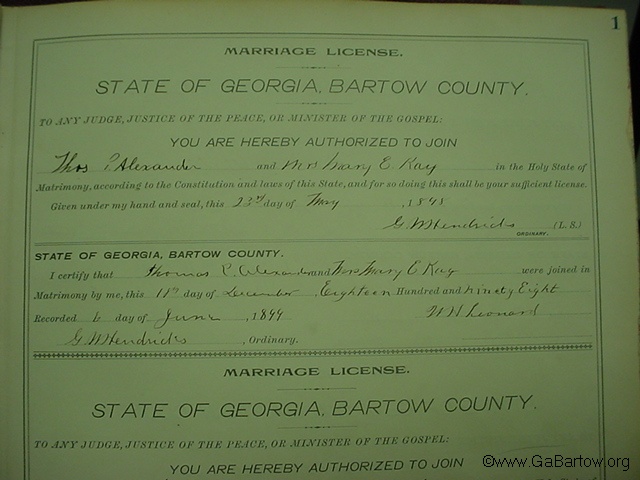 1
MARRIAGE LICENSE.
STATE OF GEORGIA, BARTOW COUNTY.
TO ANY JUDGE, JUSTICE OF THE PEACE, OR MINISTER OF THE GOSPEL:
YOU ARE HEREBY AUTHORIZED TO JOIN
Thos P. Alexander and Mrs Mary E. Kay in the Holy State of
Matrimony, according to the Constitution and laws of this State, and for so doing this shall be your sufficient license.
Given under my hand and seal, this 23rd day of , 1898
G. W Hendricks (L. S.)
ORDINARY.
STATE OF GEORGIA, BARTOW COUNTY.
I certify that Thomas P. Alexander and Mrs Mary E Kay were joined in
Matrimony by me, this 11th day of December Eighteen Hundred and ninety Eight
Recorded day of June , 1899 W H Leonard
G W Hendricks , Ordinary.
MARRIAGE LICENSE.
STATE OF GEORGIA, BARTOW COUNTY.
TO ANY JUDGE, JUSTICE OF THE PEACE, OR MINISTER OF THE GOSPEL:
YOU ARE HEREBY AUTHORIZED TO JOIN
©www.GaBartow.org